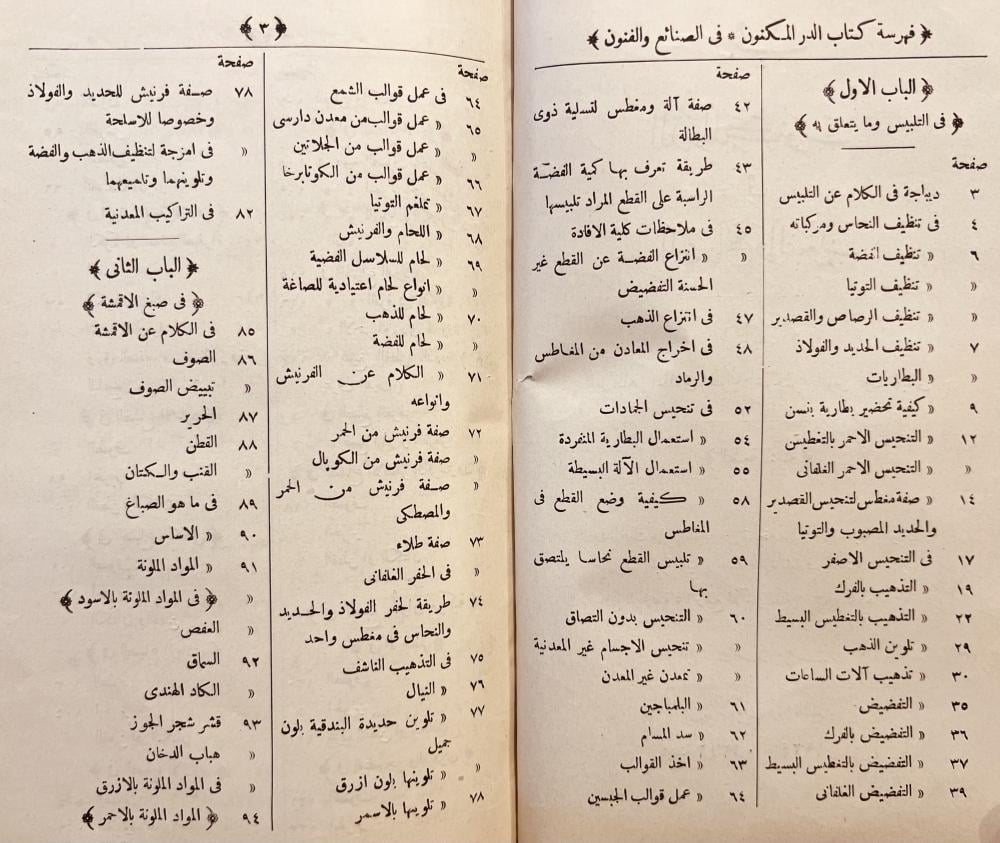 ﴿ فهرسة كتاب الدر المكنون * فى الصنائع والفنون ﴾
﴿ الباب الاول ﴾
﴿ فى التلبيس وما يتعلق به ﴾
صفحة
٣ ديباجة فى الكلام عن التلبيس
٤ فى تنظيف النحاس ومركباته
٦ « تنظيف الفضة
« « تنظيف التوتيا
« « تنظيف الرصاص والقصدير
٧ « تنظيف الحديد والفولاذ
« « البطاريات
٩ « كيفية تحضير بطارية بنسن
١٢ « التنحيس الاحمر بالتغطيس
« « التنحيس الاحمر الغلفانى
١٤ « صفة مغطس لتنحيس القصدير
والحديد المصبوب والتوتيا
١٧ فى التنحيس الاصفر
١٩ « التذهيب بالفرك
٢٢ « التذهيب بالتغطيس البسيط
٢٩ « تلوين الذهب
٣٠ « تذهيب آلات الساعات
٣٥ « التفضيض
٣٦ « التفضيض بالفرك
٣٧ « التفضيض بالتغطيس البسيط
٣٩ « التفضيض الغلفانى
صفحة
٤٢ صفة آلة ومغطس لتسلية ذوى
البطالة
٤٣ طريقة تعرف بها كمية الفضة
الراسبة على القطع المراد تلبيسها
٤٥ فى ملاحظات كلية الافادة
« « انتزاع الفضة عن القطع غير
الحسنة التفضيض
٤٧ فى انتزاع الذهب
٤٨ فى اخراج المعادن من المغاطس
والرماد
٥٢ فى تنحيس الجمادات
٥٤ « استعمال البطارية المنفردة
٥٥ « استعمال الآلة البسيطة
٥٨ « كيفية وضع القطع فى
المغاطس
٥٩ « تلبيس القطع نحاسا يلتصق
بها
٦٠ « التنحيس بدون التصاق
« « تنحيس الاجسام غير المعدنية
« « تمعدن غير المعدن
٦١ « البلمباجين
٦٢ « سد المسام
٦٣ « اخذ القوالب
٦٤ « عمل قوالب الجبسين
﴿ ٣ ﴾
صفحة
٦٤ فى عمل قوالب الشمع
٦٥ « عمل قوالب من معدن دارسى
« « عمل قوالب من الجلاتين
٦٦ « عمل قوالب من الكوتابرخا
٦٧ « تملغم التوتيا
٦٨ « اللحام والفرنيش
٦٩ « لحام للسلاسل الفضية
« « انواع لحام اعتيادية للصاغة
٧٠ « لحام للذهب
« « لحام للفضة
٧١ « الكلام عن الفرنيش
وانواعه
٧٢ صفة فرنيش من الحمر
« صفة فرنيش من الكوبال
« صفة فرنيش من الحمر
والمصطكى
٧٣ صفة طلاء
« فى الحفر الغلفانى
٧٤ طريقة لحفر الفولاذ والحديد
والنحاس فى مغطس واحد
٧٥ فى التذهيب الناشف
٧٦ « النيال
٧٧ « تلوين حديدة البندقية بلون
جميل
« « تلوينها بلون ازرق
٧٨ « تلوينها بالاسمر
صفحة
٧٨ صفة فرنيش للحديد والفولاذ
وخصوصا للاسلحة
« فى امزجة لتنظيف الذهب والفضة
وتلوينهما وتلميعهما
٨٢ فى التراكيب المعدنية
﴿ الباب الثانى ﴾
﴿ فى صبغ الاقمشة ﴾
٨٥ فى الكلام عن الاقمشة
٨٦ الصوف
« تبييض الصوف
٨٧ الحرير
٨٨ القطن
« القنب والكتان
٨٩ فى ما هو الصباغ
٩٠ « الاساس
٩١ « المواد الملونة
« ﴿ فى المواد الملونة بالاسود ﴾
« العفص
٩٢ السماق
« الكاد الهندى
٩٣ قشر شجر الجوز
« هباب الدخان
« فى المواد الملونة بالازرق
٩٤ ﴿ المواد الملونة بالاحمر ﴾